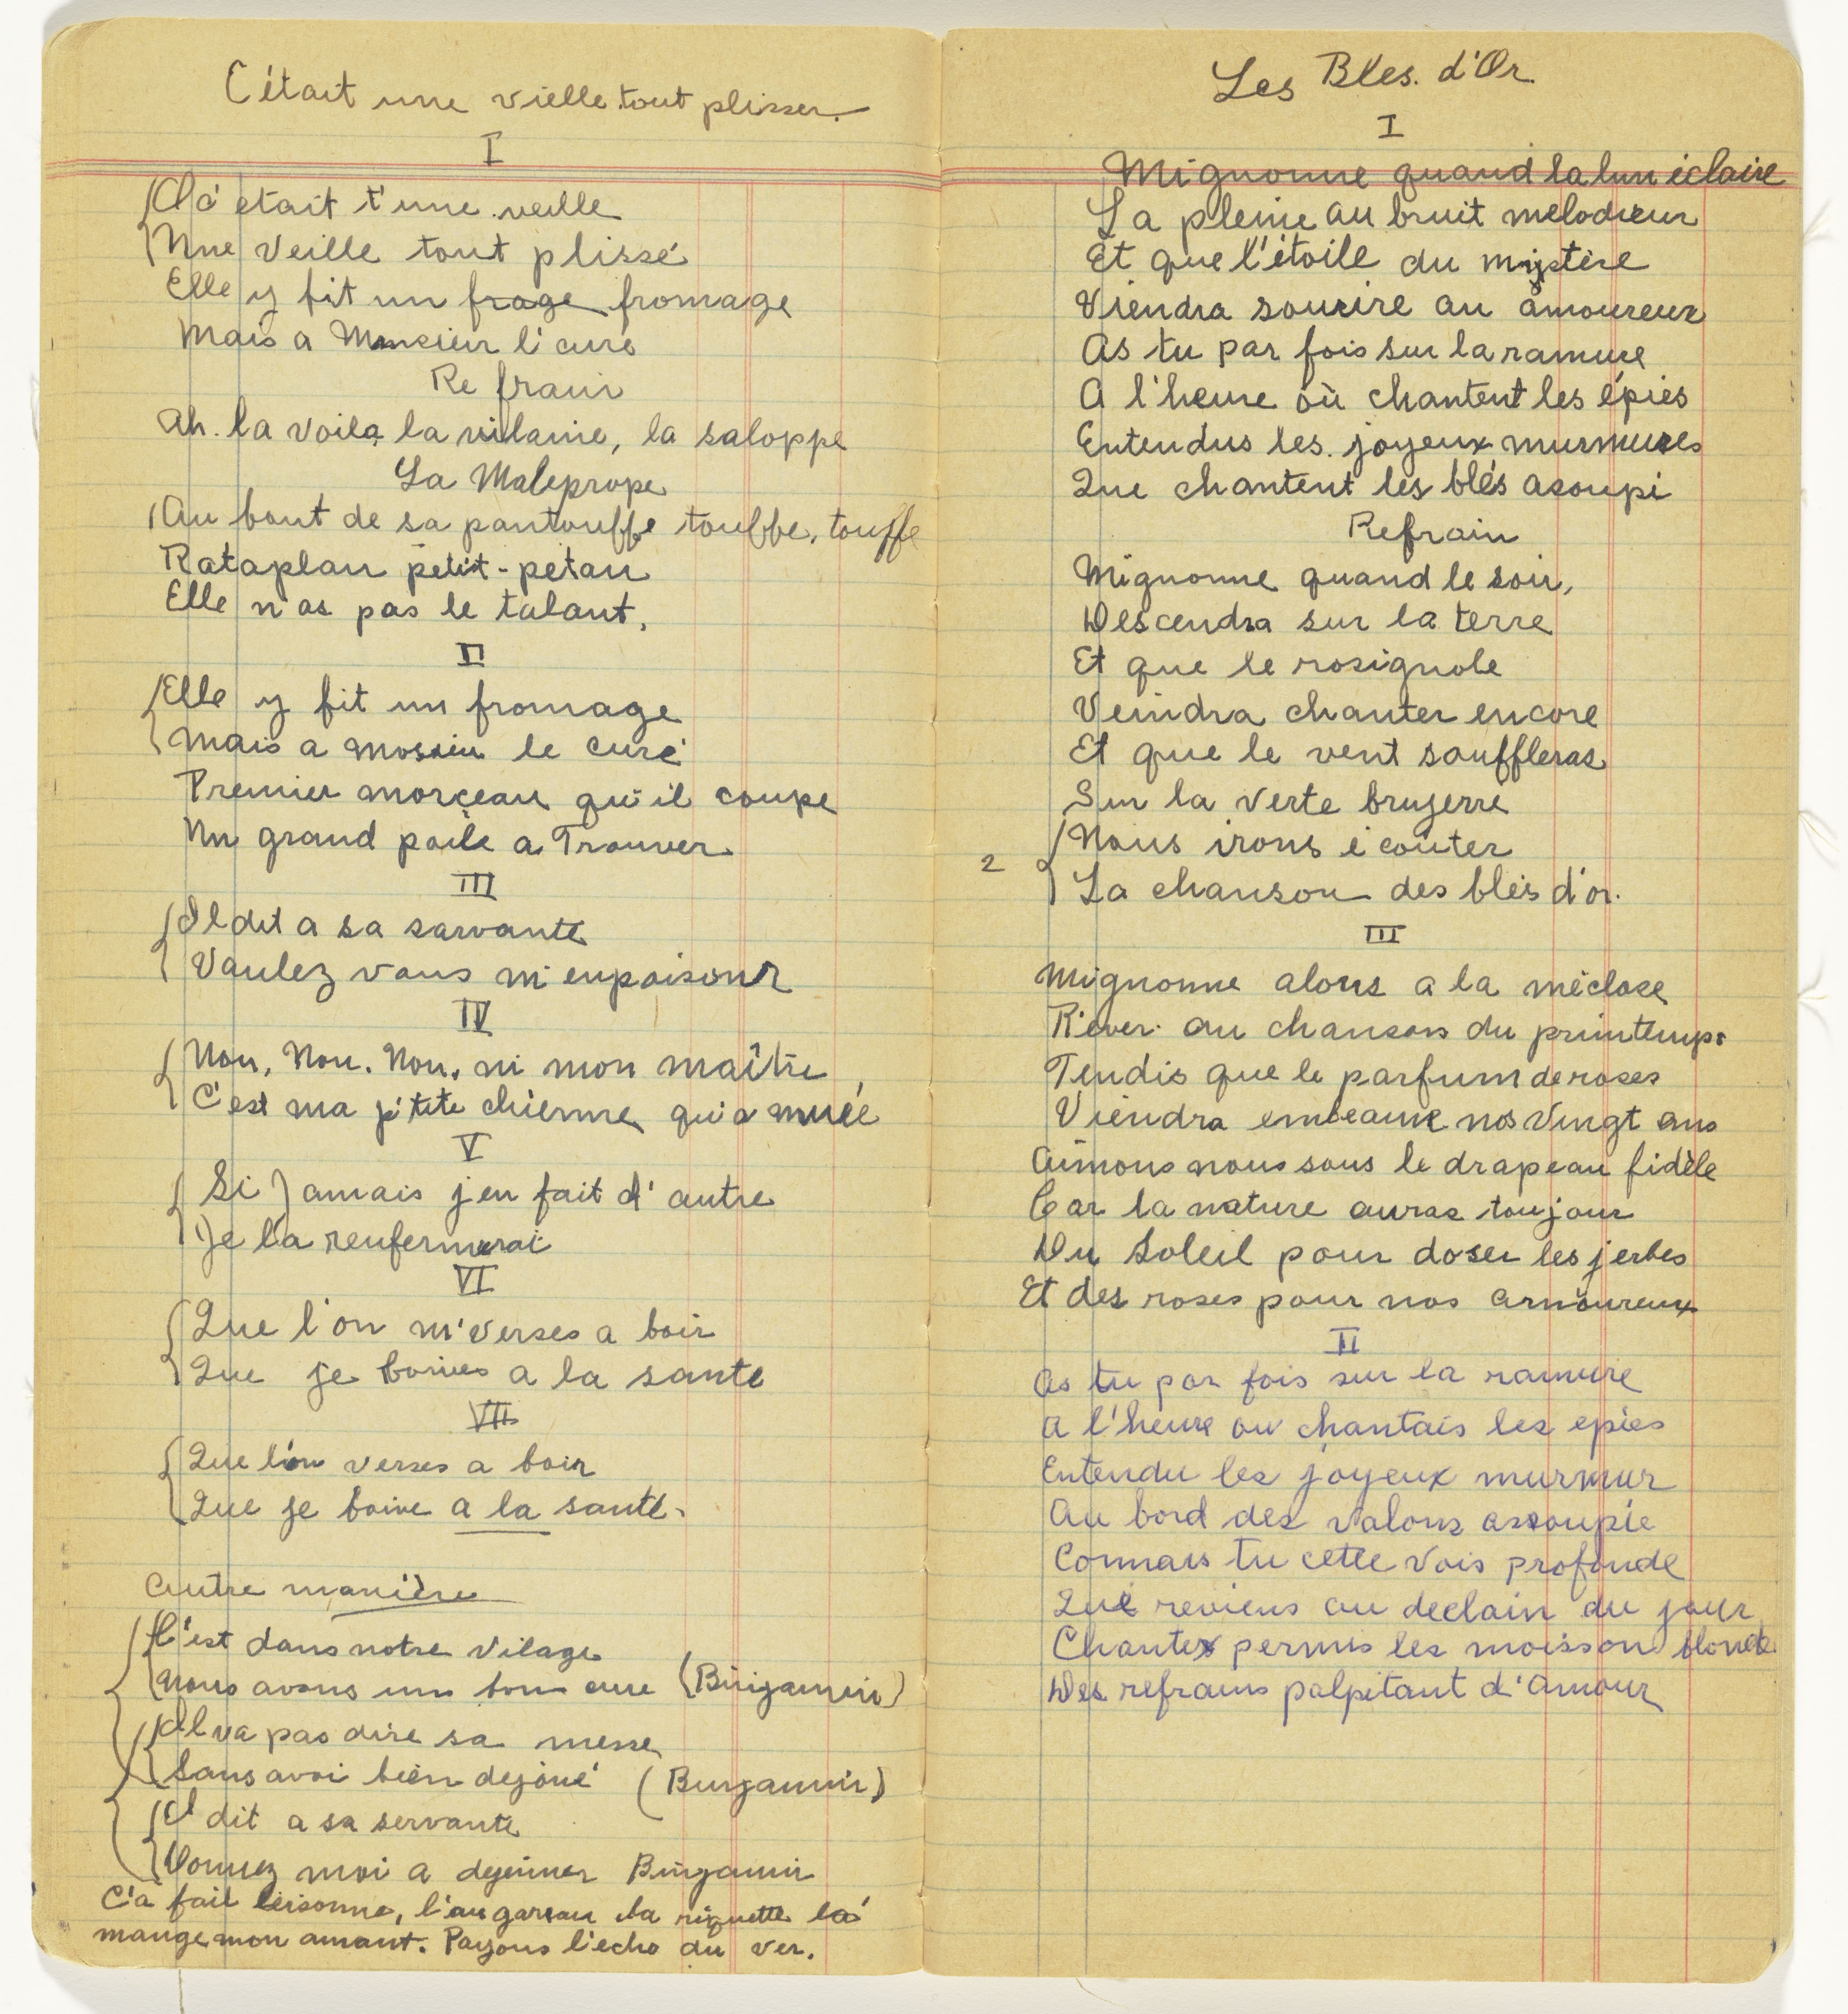 C'était une vielle tout plisser.
I
Il c' etait t'une veille
Une veille tout plissé
Elle y fit un frage fromage
Mais a Monsieur l'curé
Refrain
Ah. la voila la vilaine, la saloppe
La Maleprope
Au bout de sa pantouffe touffe, touffe
Rataplan petit-petan
Elle n'as pas le talant.
II
Elle y fit un fromage
Mais a mossieu le curé
Premier morçeau qu'il coupe
Un grand poile a Trouver
III
Il dit a sa sarvante
Voulez vous m'enpoisonr
IV
Non, Non. Non, ni mon maître
C'est ma p'tete chienne qui a muée
V
Si Jamais j'en fait d'autre
Je la renfermerai
VI
Que l'on m'verses a boir
Que je boives a la sante
VII
Que l'on verses a boir
Que je boive a la santé.
Autre manière
C'est dans notre vilage
Nous avons un bon cure (Binjamin)
Il va pas dire sa messe
Sans avoi bien dejoné (Bunjamin)
I dit a sa servante
Donnez moi a dejeuner Binjamin
C'a fait , l'au la riquette la
mange mon amant. Payons l'echo du ver.
Les Bles. d'Or
I
Mignonne quand la lun éclaire
La pleine au bruit melodieux
Et que l'étoile du mystère
Viendra sourire au amoureux
As tu par fois sur la ramure
A l'heure où chantent les épies
Entendus les joyeux murmures
Que chantent les blés asoupi
Refrain
Mignonne quand le soir,
Descendra sur la terre
Et que le rosignole
Veindra chanter encore
Et que le vent souffleras
Sur la verte bruyerre
2 Nous irons écoûter
La chanson des blés d'or.
III
Mignonne alons a la méclose
Rêver au chanson du printemps
Tendis que le parfum de roses
Viendra embeaume nos vingt ans
Aimons nous sous le drapeau fidèle
Car la nature auras toujour
Du Soleil pour doser les jerbes
Et des roses pour nos amoureux
II
As tu par fois sur la ramure
A l'heure ou chantais les epies
Entendu les joyeux murmur
Au bord des valons assoupie
Connais tu cette vois profonde
Qui reviens au declain du jour
Chantex permis les moisson blonde
Des refrains palpitant d'amour